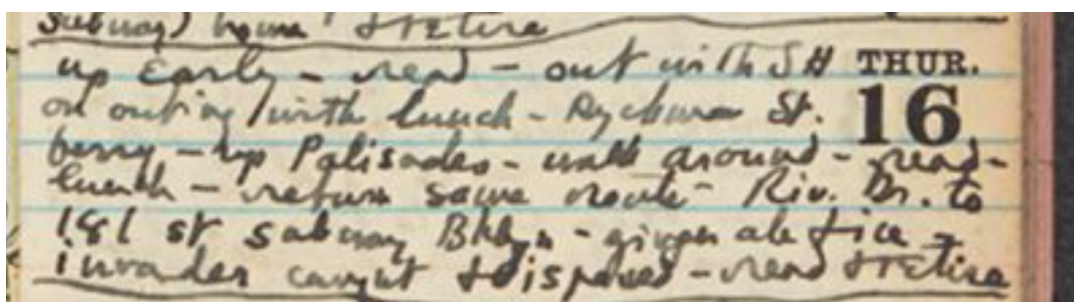 subway) home & retire
up early - read - out with SH THUR.
on outing/with lunch - Dyckman St. 16
ferry - up Palisades - walk around - read -
lunch - return same route - Riv. Dr. to
181 st subway Bklyn - ginger ale & ice -
invader caught & disposed - read & retire